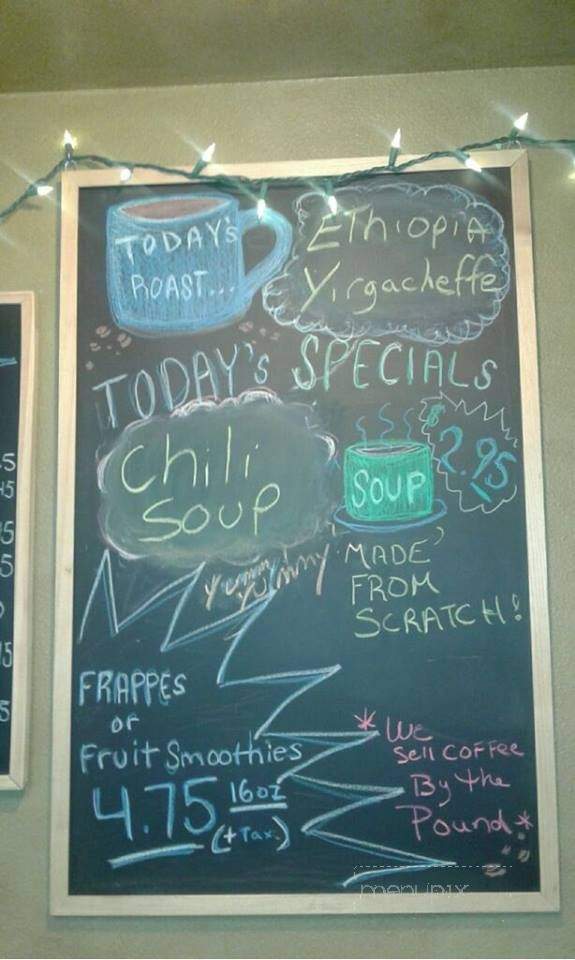 TODAY's
ROAST...
EThiopia
Yirgacheffe
TODAY's SPECIALs
Chili
SOUP
SOUP
$2.95
yummy yummy!
'MADE'
FROM
SCRATCH!
FRAPPES
or
Fruit Smoothies
4.75 16oz
(+Tax)
*We
Sell COFFee
By the
Pound*
menupix
5
45
15
5
15
5